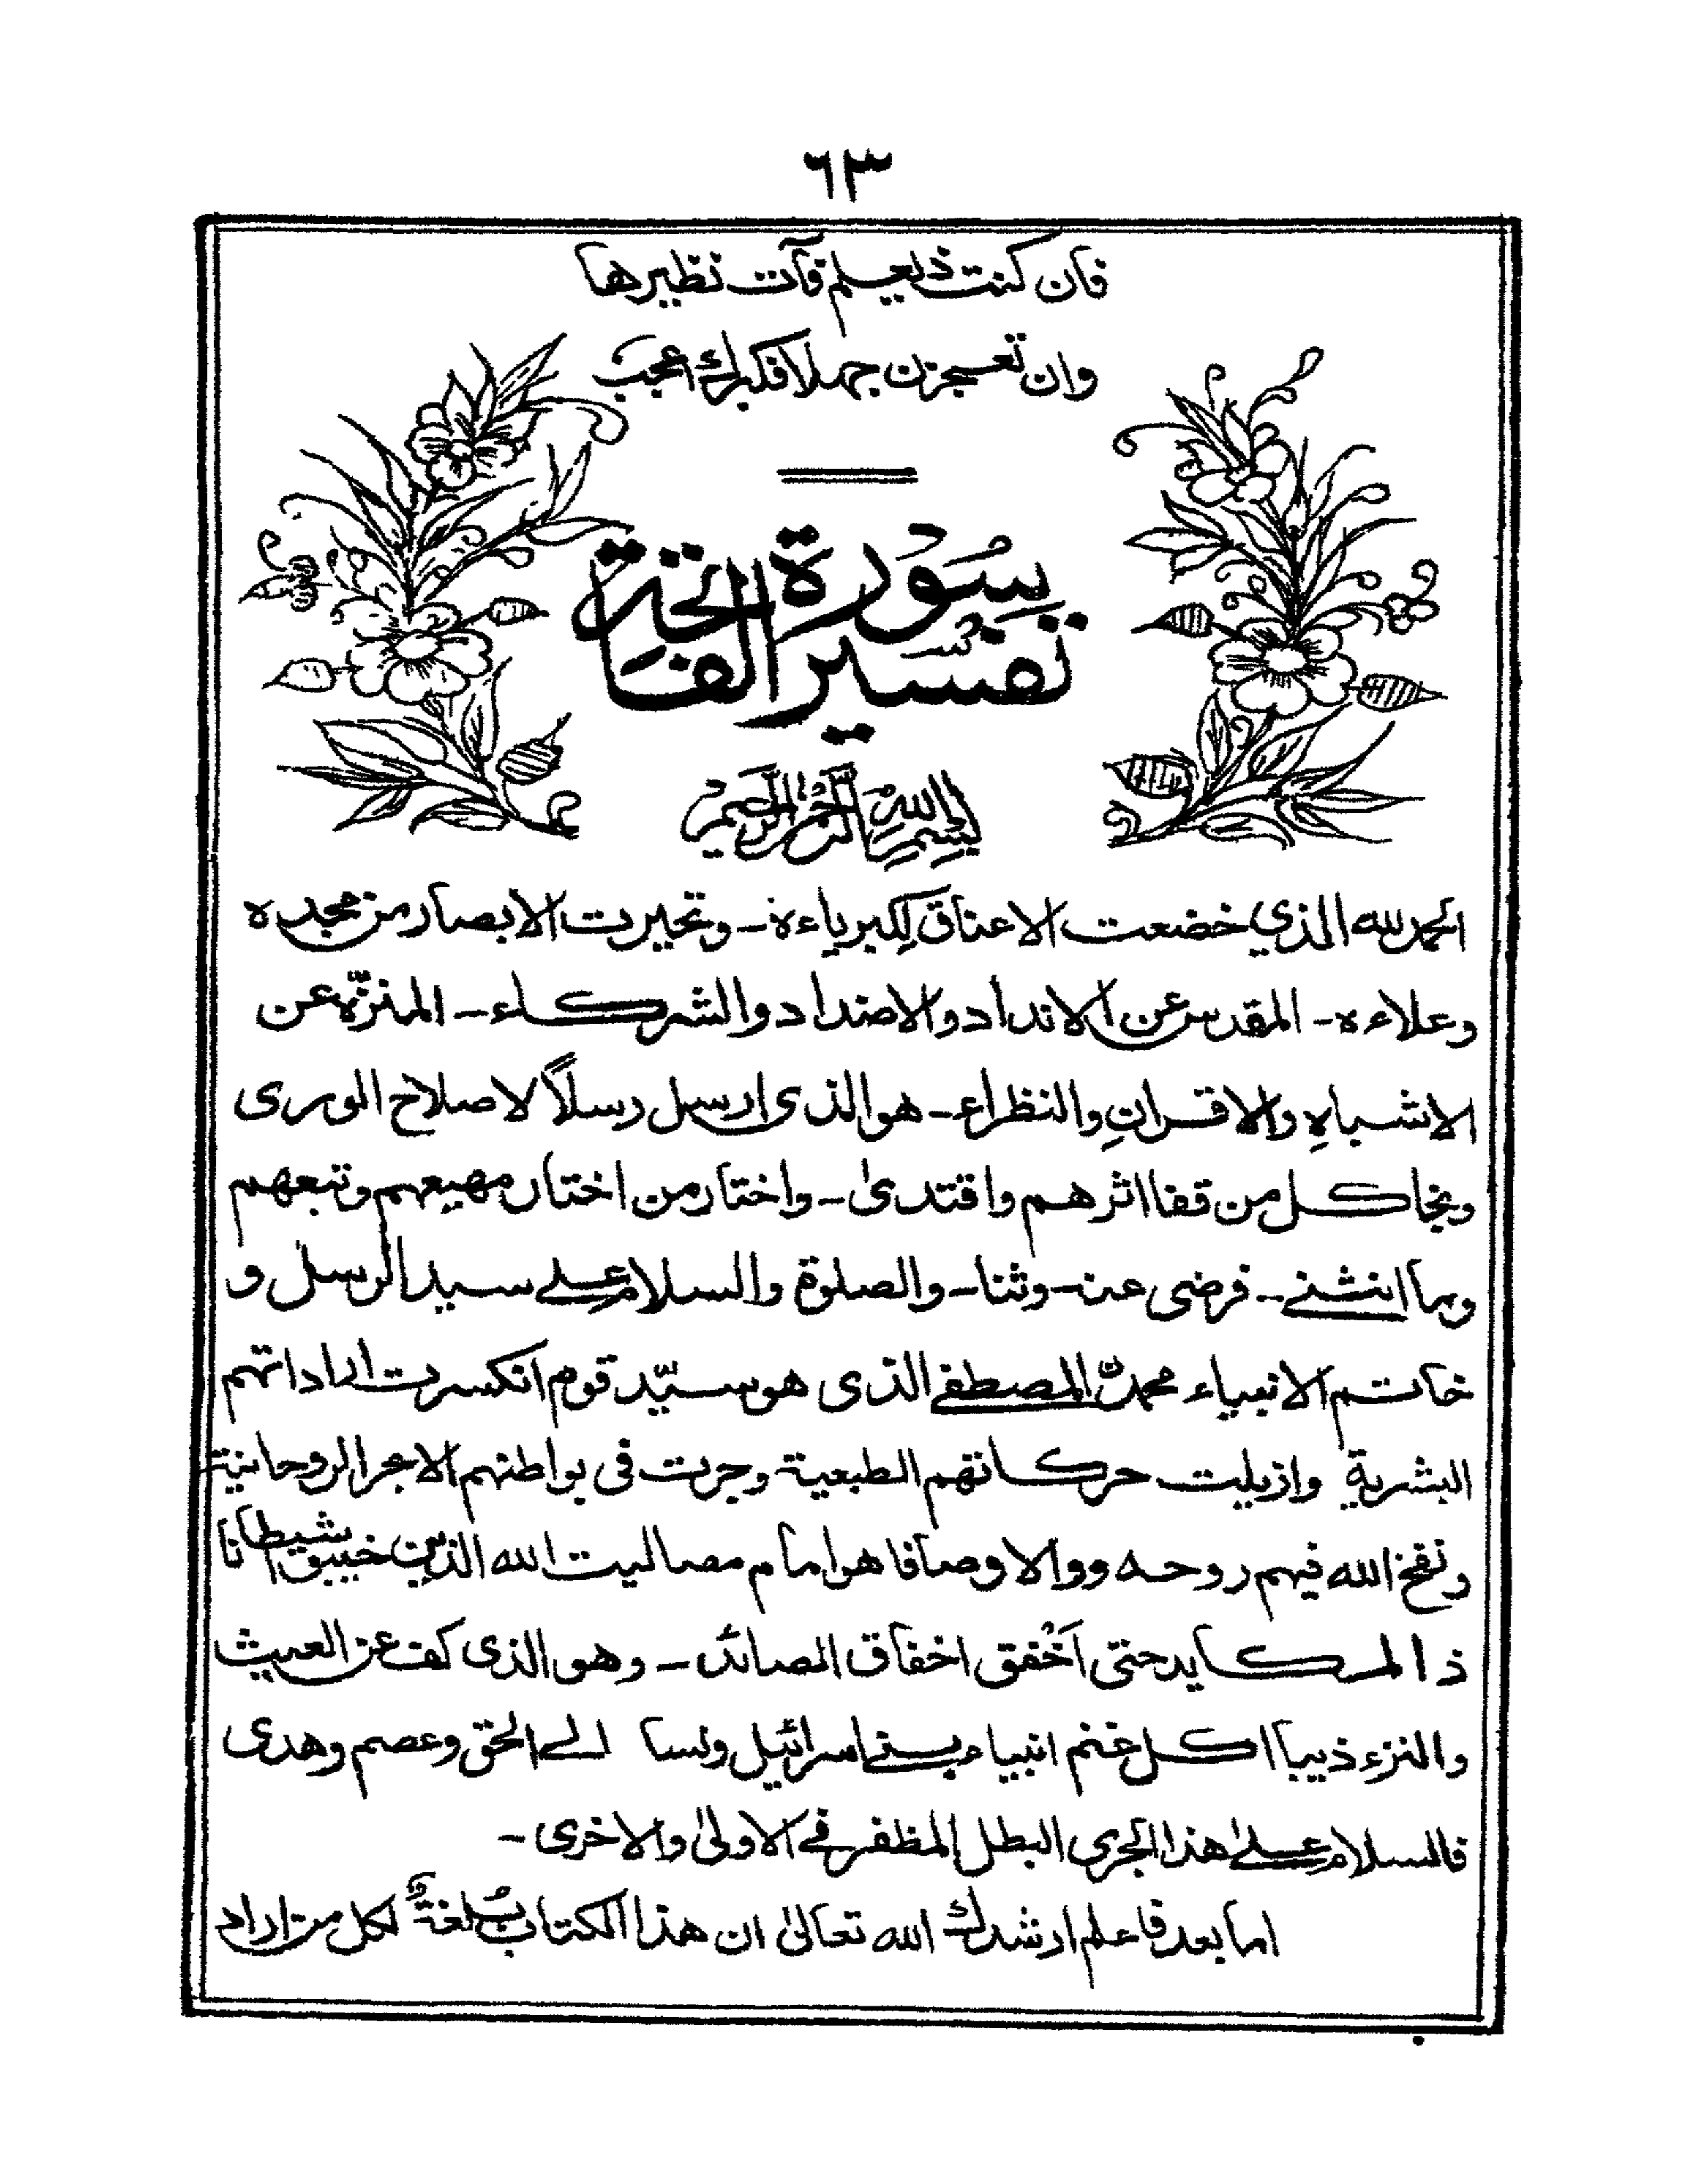 ٦٣
فان كنت ذا علم فآت نظيرها
وان تعجزن جهلا فكبرك اعجب
تفسير سورة الفاتحة
بسم الله الرحمن الرحيم
الحمد لله الذي خضعت الاعناق لكبرياءه - وتحيرت الابصار من مجده
وعلاءه - المقدس عن الانداد والاضداد والشركاء - المنزّه عن
الاشباهِ والاقرانِ والنظراء - هو الذى ارسل رسلاً لاصلاح الورى
ونجا كل من قفا اثرهم واقتدىٰ - واختار من اختار مهيعهم وتبعهم
وما انثنى - فرضى عنه - وثنا - والصلوة والسلام على سيد الرسل و
خاتم الانبياء محمدن المصطفى الذى هو سيّد قوم انكسرت اراداتهم
البشرية وازيلت حركاتهم الطبعية وجرت فى بواطنهم الابحر الروحانية
ونفخ الله فيهم روحه ووالا وصافا هو امام مصاليت الله الذين شيطانا
ذا المكايد حتى اَخْفق اخفاق المصائد - وهو الذى كف عن العيث
والنزء ذيبا اكل غنم انبياء بنى اسرائيل ونسا الى الحق وعصم وهدى
فالسلام علىٰ هذا الجرى البطل المظفر فى الاولىٰ والاخرى -
اما بعد فاعلم ارشدك الله تعالىٰ ان هذا الكتاب بُلغةٌ لكل من اراد